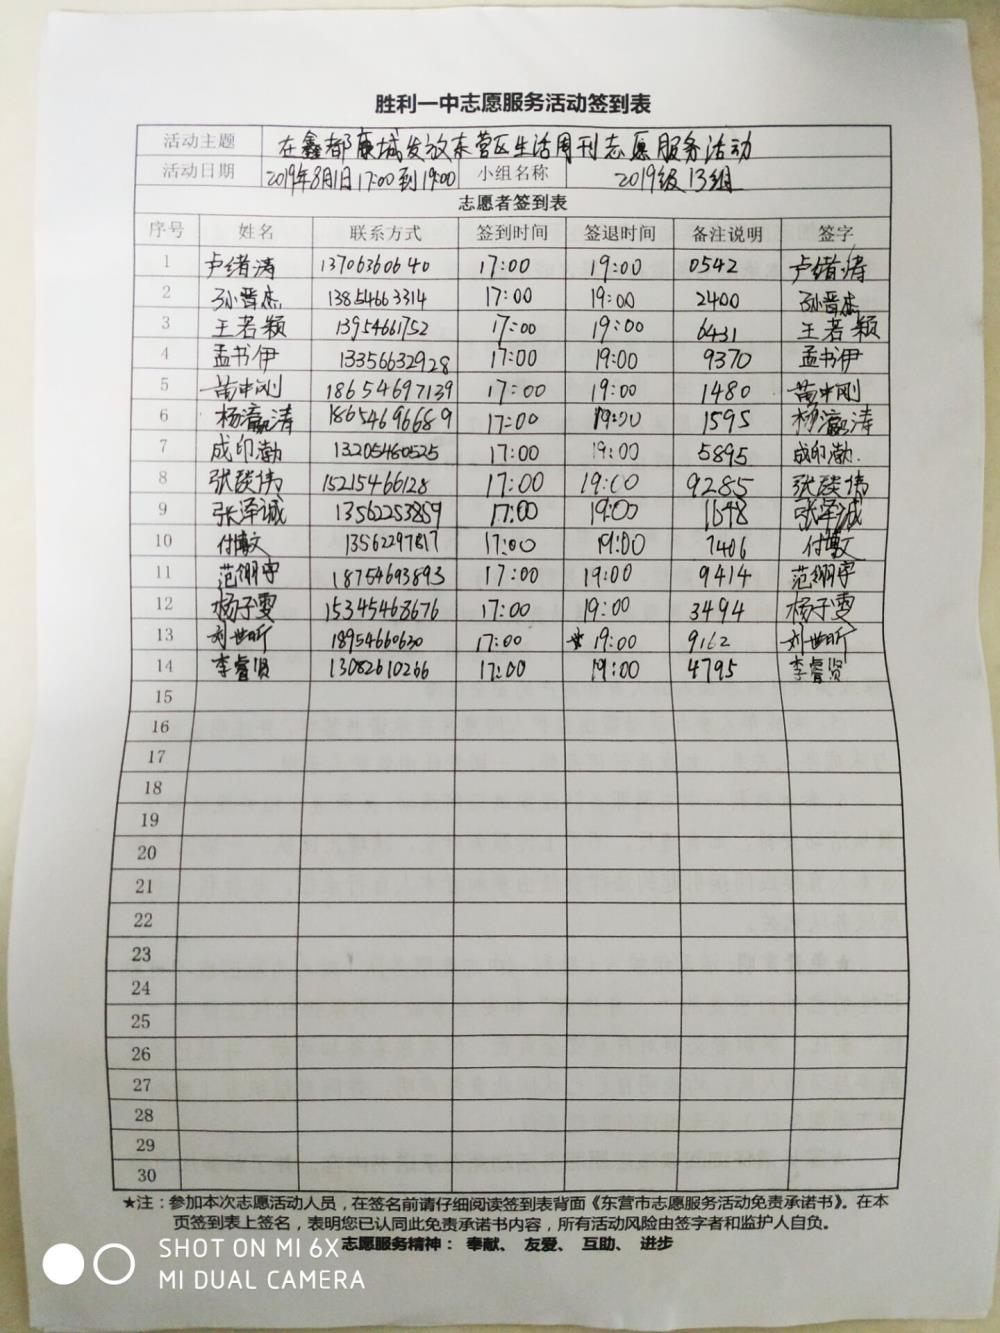 胜利一中志愿服务活动签到表
活动主题 在鑫都康城发放东营区生活周刊志愿服务活动
活动日期 2019年8月1日17:00到19:00 小组名称 2019级13组
志愿者签到表
序号 姓名 联系方式 签到时间 签退时间 备注说明 签字
1 卢绪涛 13706360640 17:00 19:00 0542 卢绪涛
2 孙晋杰 13854663314 17:00 19:00 2400 孙晋杰
3 王若颖 13954661752 17:00 19:00 6431 王若颖
4 孟书伊 13356632928 17:00 19:00 9370 孟书伊
5 苗中刚 18654697139 17:00 19:00 1480 苗中刚
6 杨瀛涛 18654696689 17:00 19:00 1595 杨瀛涛
7 成印渤 13205460525 17:00 19:00 5895 成印渤
8 张琰伟 15215466128 17:00 19:00 9285 张琰伟
9 张泽诚 13562253859 17:00 19:00 1648 张泽诚
10 17:00 19:00 7406
11 18754693893 17:00 19:00 9414
12 杨子雯 15345468676 17:00 19:00 3494 杨子雯
13 刘世昕 18954660630 17:00 19:00 9162 刘世昕
14 李睿贤 13082610266 17:00 19:00 4795 李睿贤
15
16
17
18
19
20
21
22
23
24
25
26
27
28
29
30
★注：参加本次志愿活动人员，在签名前请仔细阅读签到表背面《东营市志愿服务活动免责承诺书》。在本
页签到表上签名，表明您已认同此免责承诺书内容，所有活动风险由签字者和监护人自负。
志愿服务精神： 奉献、 友爱、 互助、 进步
SHOT ON MI 6X
MI DUAL CAMERA